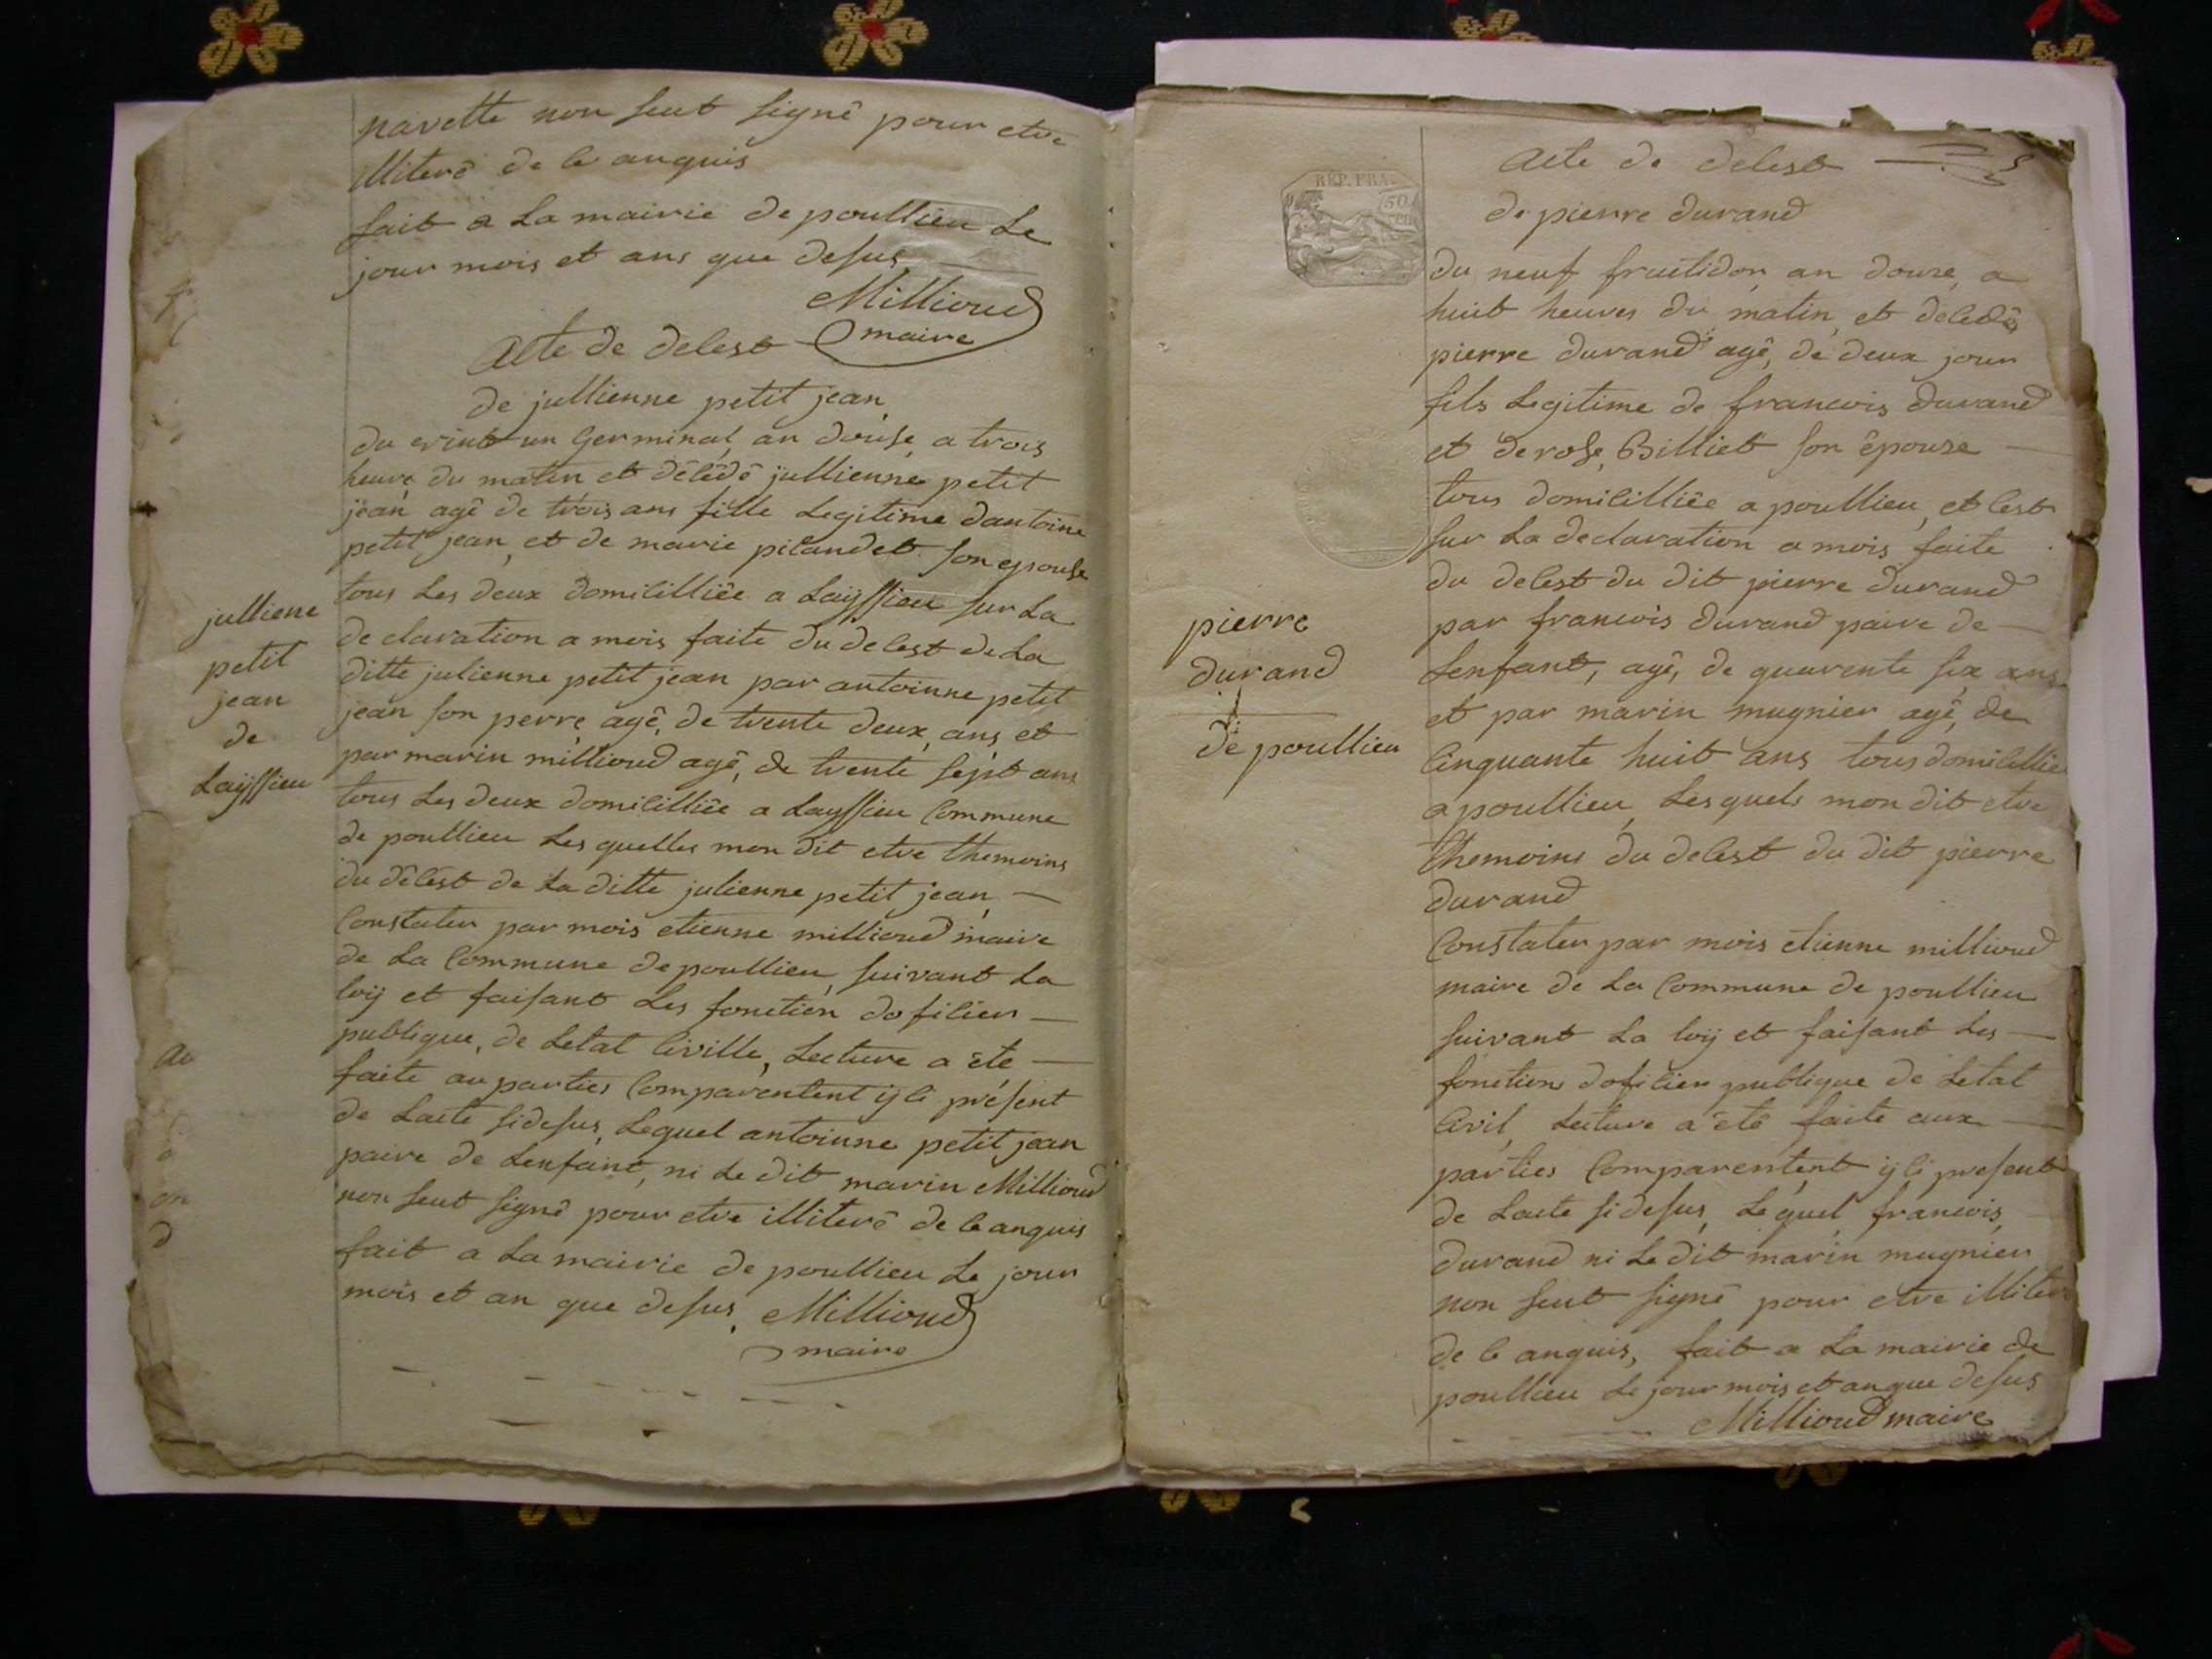 navette non seut signé pour etre
illiteré de ce anquis
fait a La mairie de poullieu Le
jour mois et ans que desus
Millioud
maire
Acte de delest
de jullienne petit jean
du vint un Germinal an douse a trois
heure du matin et délédé jullienne petit
jean agé de trois ans fille Legitime dantoine
petit jean et de marie pilandet son epouse
tous Les deux domicilliée a Layssieu sur La
declaration a mois faite du delest de La
ditte julienne petit jean par antoinne petit
jean son perre agé, de trente deux, ans et
par marin millioud agé, de trente sept ans
tous Les deux domicilliée a Layssieu Commune
de poullieu Les quelles mon dit etre themoins
du délest de La ditte julienne petit jean
Constater par mois etienne millioud maire
de La Commune de poullieu, suivant La
loij et faisant Les fonction dofilier
publique, de Letat Civille, Lecture a été
faite au parties Comparentent ijli présent
de Lacte sidesus, Lequel antoinne petit jean
paire de Lenfant, ni Le dit marin Millioud
non seut signé pour etre illiteré de ce anquis
fait a La mairie de poullieu Le jour
mois et an que desus, Millioud
maire
julliene
petit
jean
de
Layssieu
Acte de delest
de pierre durand
REP. FRA.
50
du neuf fruitidor an douze, a
huit heures du matin, et delédé
pierre durand agé, de deux jour
fils Legitime de francois durand
et de rose, Billiet son épouse
tous domicilliée a poullieu, et Cest
sur La declaration a mois faite
du delest du dit pierre durand
par francois durand paire de
Lenfant, agé, de quarente six ans
et par marin mugnier agé, de
Cinquante huit ans tous domicillie
a poullieu, Les quels mon dit etre
themoins du delest du dit pierre
durand
Constater par mois etienne millioud
maire de La Commune de poullieu
suivant La loij et faisant Les
fonction dofilier publique de Letat
Civil, Lecture a été faite aux
parties Comparentent ijli present
de Lacte sidesus, Lequel francois
durand ni Le dit marin mugnier
non seut signé pour etre illiter
de ce anquis, fait a La mairie de
poullieu Le jour mois et an que desus
Millioud maire
pierre
durand
de poullieu